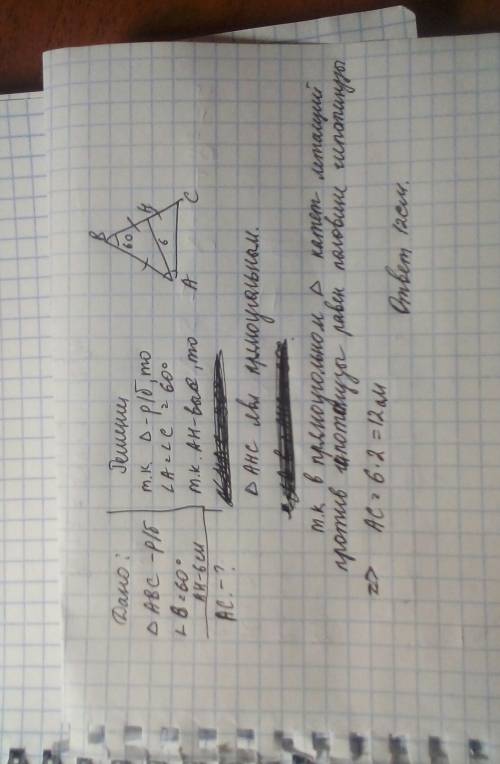 Дано:
△ ABC - р/б
∠B = 60°
AH - 6 см
AC - ?
Решение
т.к. △ - р/б, то
∠A = ∠C = 60°
т.к. AH - выс, то
△ AHC явл прямоугольном.
т.к в прямоугольном △ катет лежащий
против гипотенузы равен половине гипотенузы
=> AC = 6·2 = 12 см
Ответ 12см.
B
60
H
6
A
C